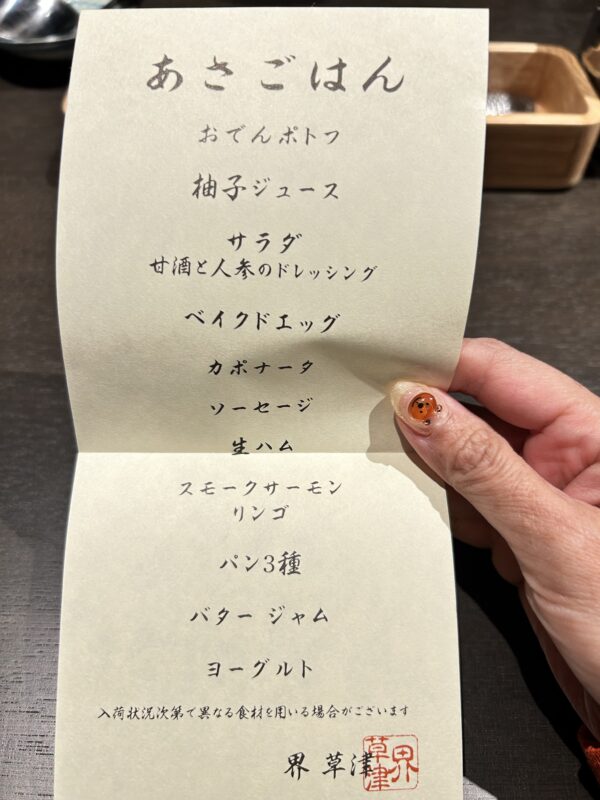 あさごはん
おでんポトフ
柚子ジュース
サラダ
甘酒と人参のドレッシング
ベイクドエッグ
カポナータ
ソーセージ
生ハム
スモークサーモン
リンゴ
パン3種
バター ジャム
ヨーグルト
入荷状況次第で異なる食材を用いる場合がございます
界 草津
界草津